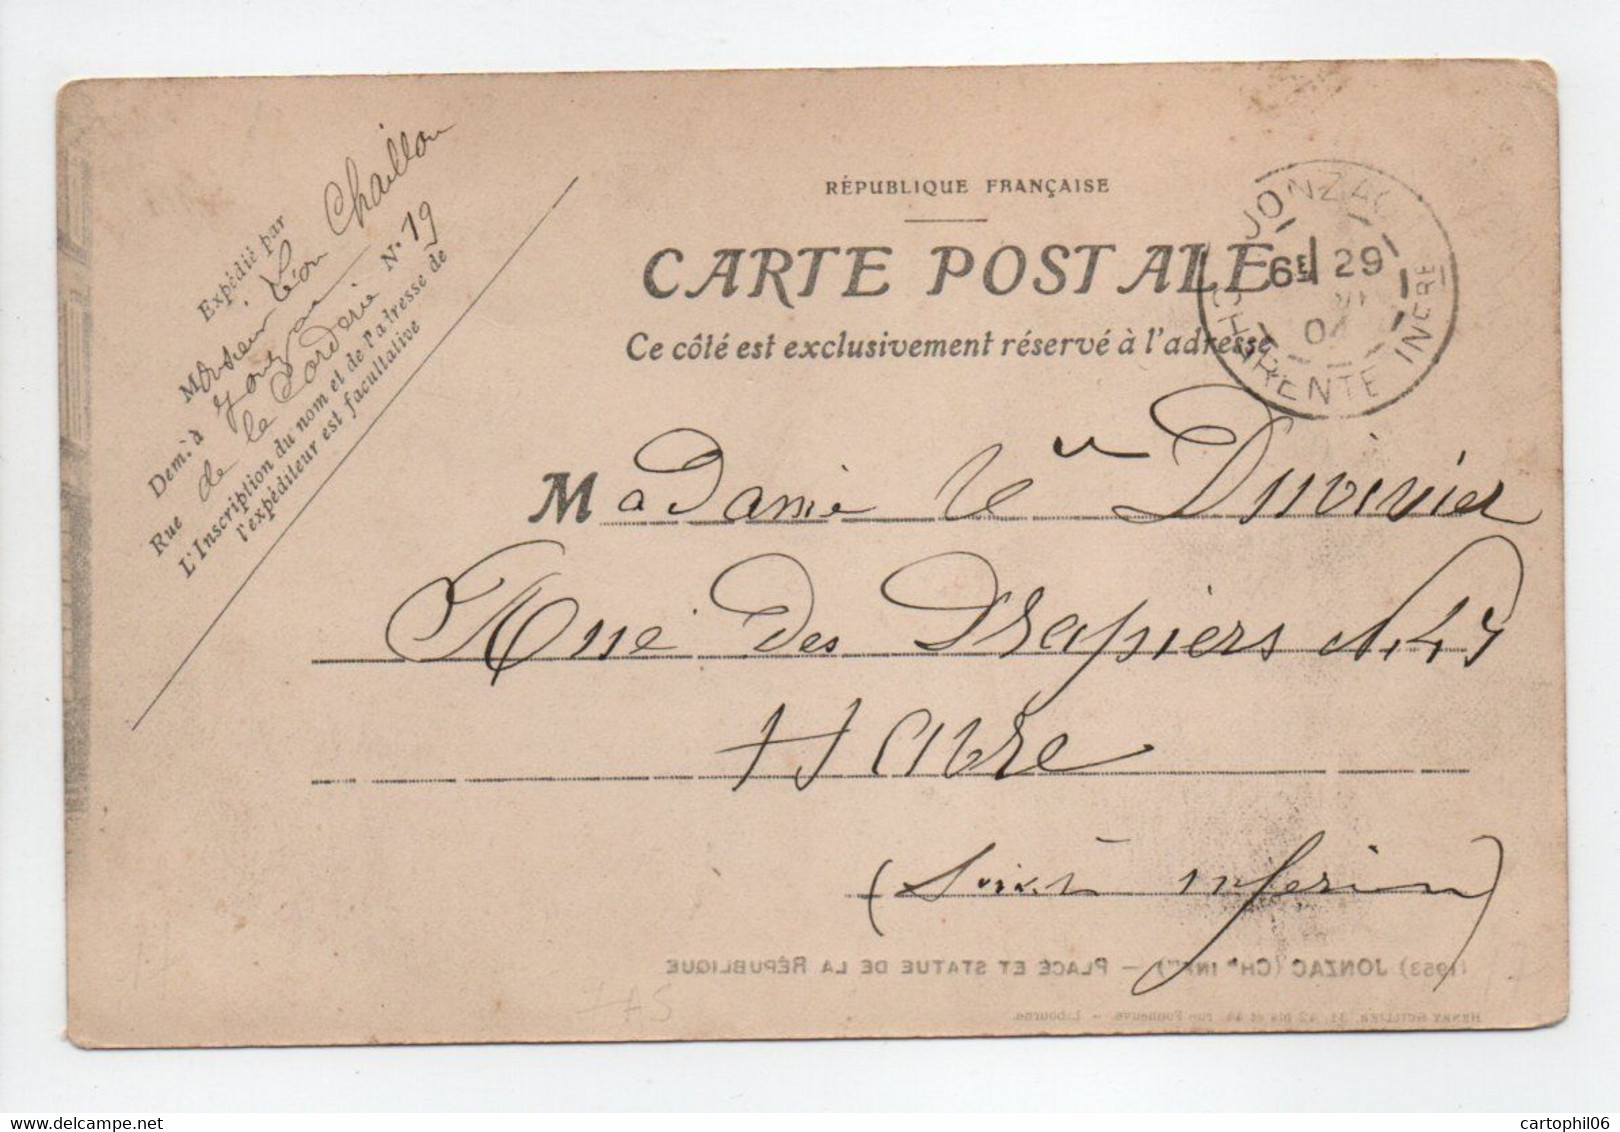 Expédié par
Monsieur Léon Chaillou
Dem.t à Jonzac
Rue de la Corderie N° 19
L'Inscription du nom et de l'adresse de
l'expéditeur est facultative
RÉPUBLIQUE FRANÇAISE
CARTE POSTALE
Ce côté est exclusivement réservé à l'adresse
JONZAC
6E 29
04
CHARENTE INFRE
Madame Ve Duvivier
Rue des Drapiers N. 47
Havre
(Seine inférieure)
(1953) JONZAC (CHte INFre) — PLACE ET STATUE DE LA RÉPUBLIQUE
HENRY GUILLIER, 31, 42 bis et 44, rue Fonneuve. - Libourne.
cartophil06